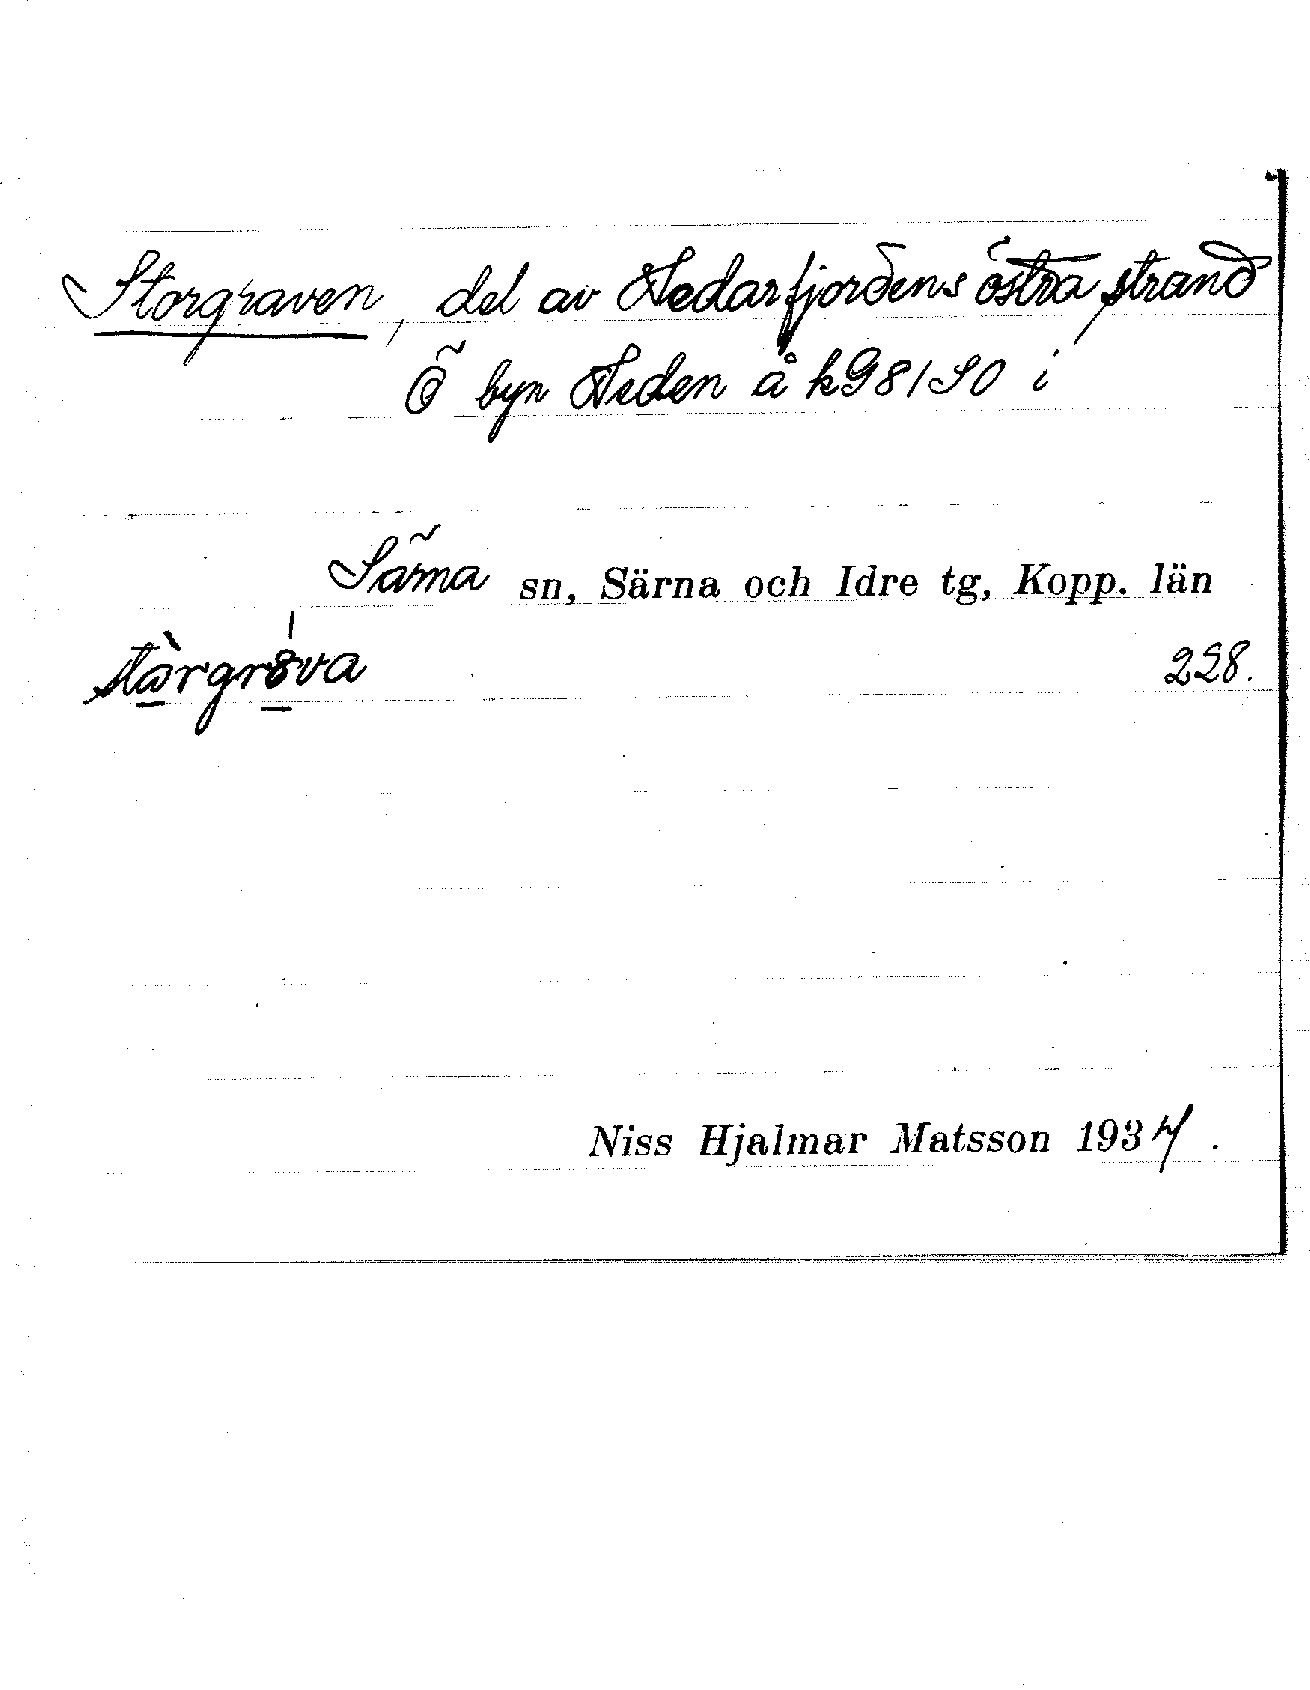 Storgraven, del av Hedarfjordens östra strand
Ö byn Heden å k98190 i
Särna sn, Särna och Idre tg, Kopp. län
298.
Niss Hjalmar Matsson 1934.